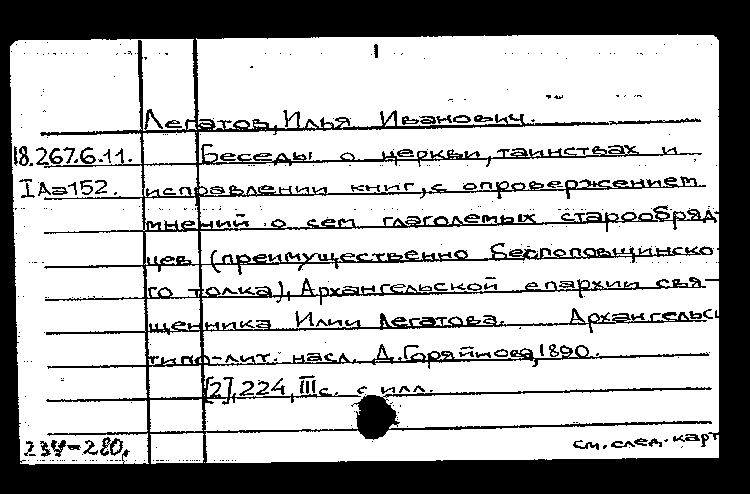 Легатов, Илья Иванович.
18.267.6.11. Беседы о церкви, таинствах и
IAa152. исправлении книг, с опровержением
мнений о сем глаголемых старообряд-
цев (преимущественно Беспоповщинско-
го толка), Архангельской епархии свя-
щенника Илии Легатова. Архангельс
типо-лит. насл. Д. Горяйнова, 1890.
[2], 224, III с. с илл.
234-280.
см. след. карт